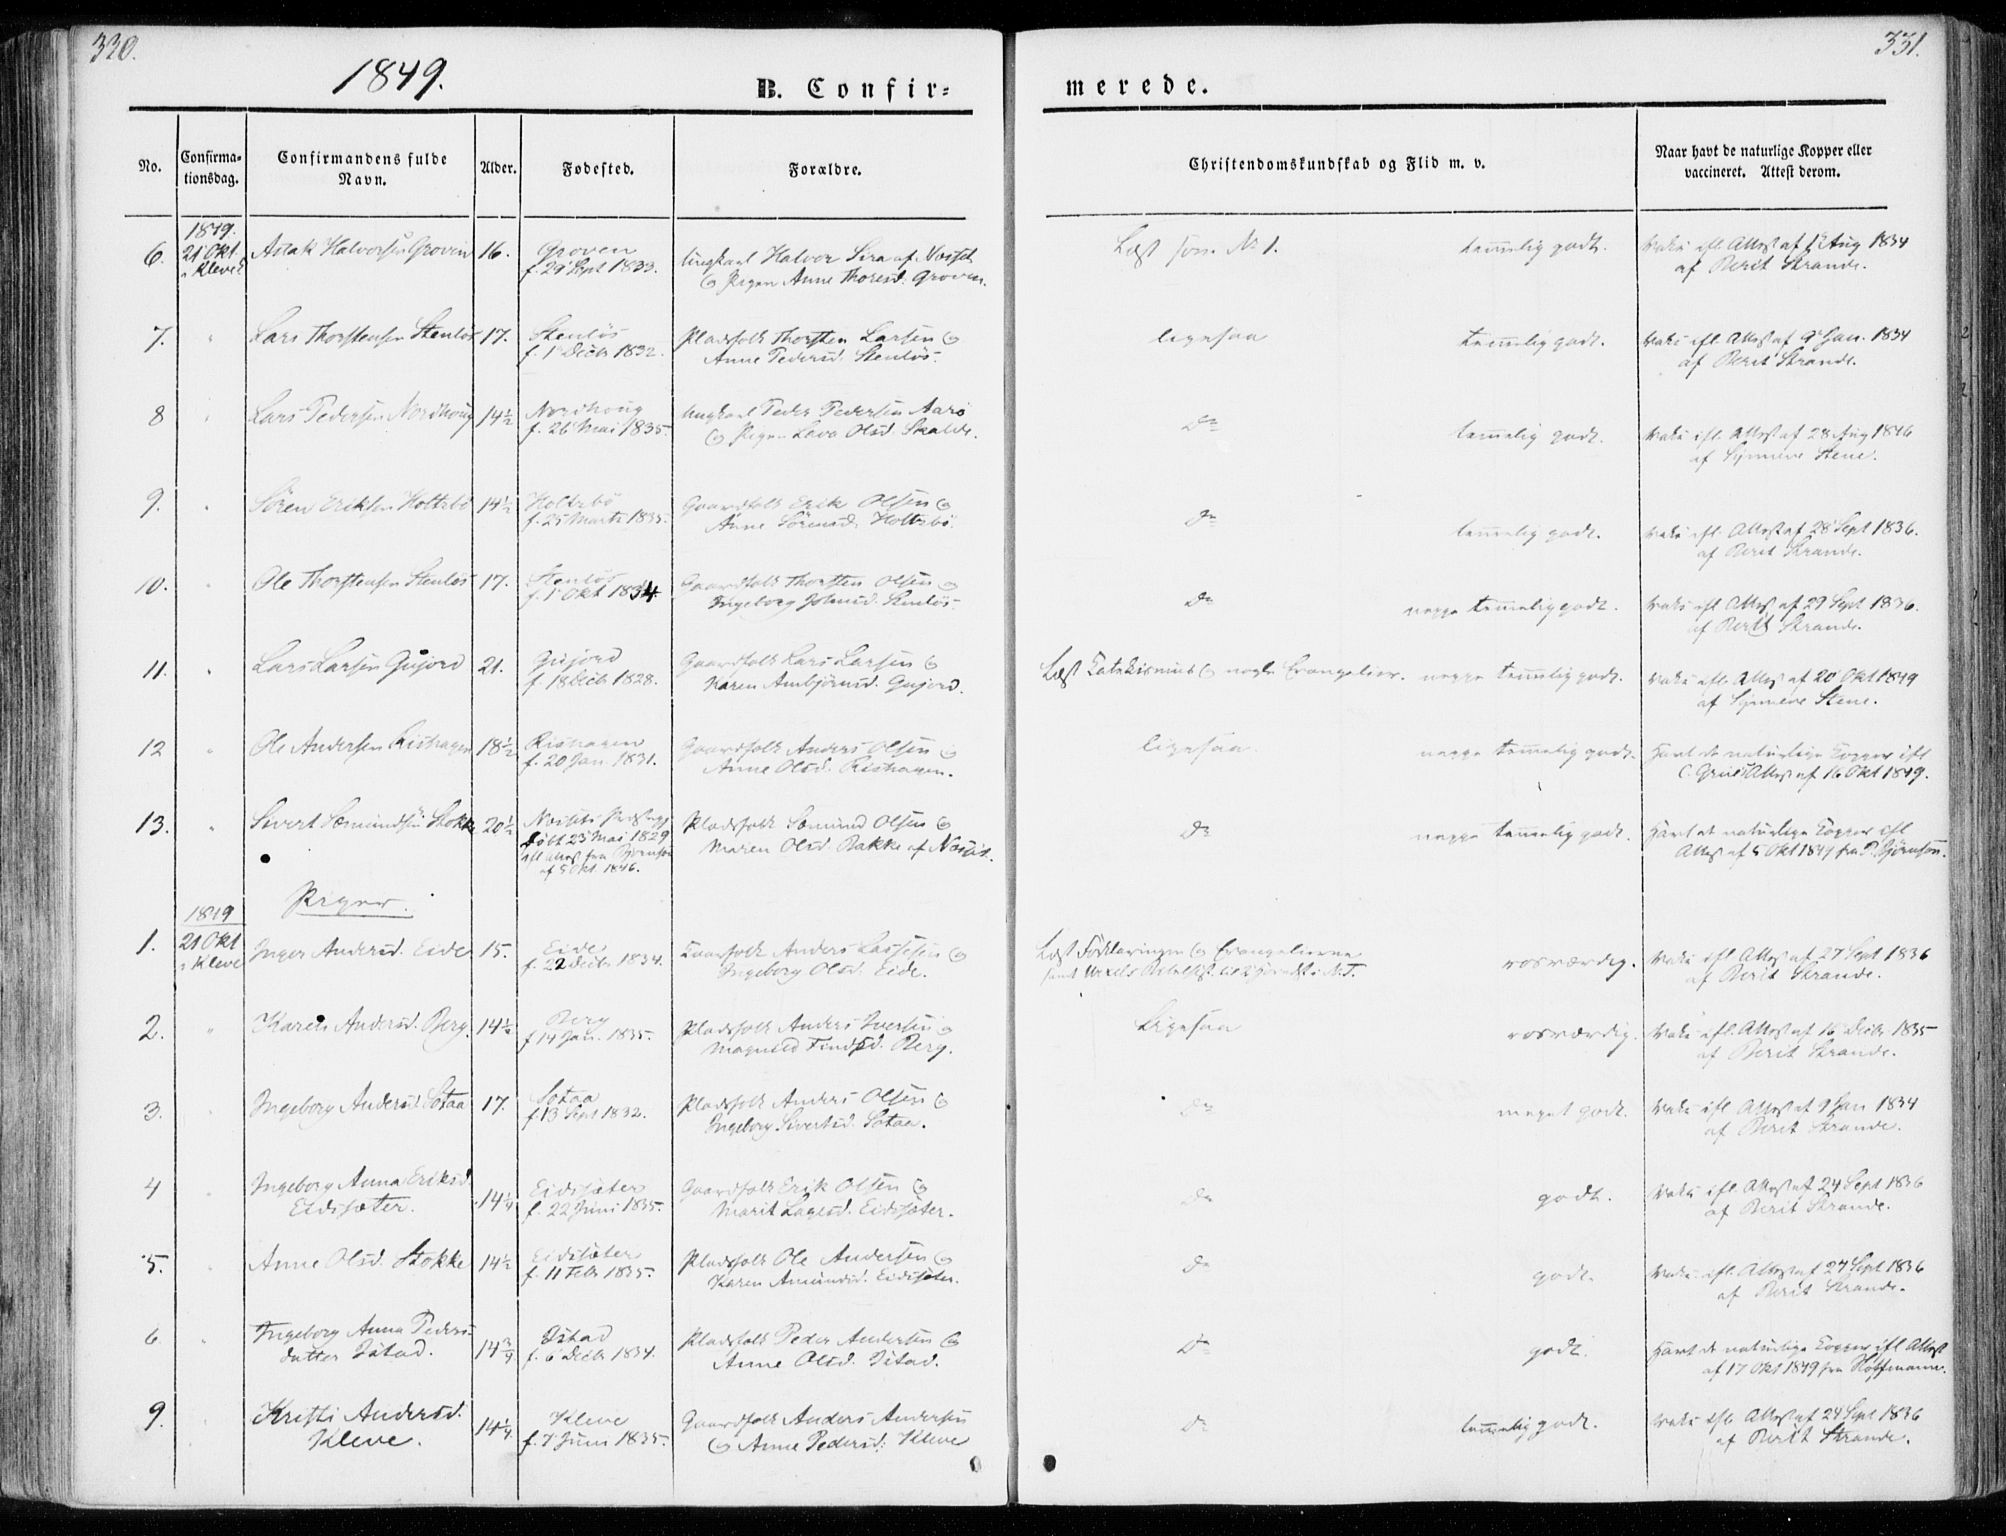 330.
331.
1849.
B. Confir=
merede.
No.
Confirma-
tionsdag.
Confirmandens fulde
Navn.
Alder.
Fødested.
Forældre.
Christendomskundskab og Flid m. v.
Naar havt de naturlige Kopper eller
vaccineret. Attest derom.
1849.
6. 21 Okt. Aslak Halvorsen Groven 16. Groven
i Kleve f. 29 Sept 1833.
Ungkarl Halvor Sira af Nesset
& Pigen Anne Thoresd. Groven.
Læst som No 1. temmelig godt.
Vakc ifl. Attest af 1 Aug 1834
af Berit Strande.
7. " Lars Thorstensen Stenløs 17. Stenløs
f. 1 Decbr 1832.
Pladsfolk Thorsten Larsen &
Anne Pedersd. Stenløs.
ligesaa temmelig godt.
Vakc ifl. Attest af 9 Jan. 1834
af Berit Strande.
8 " Lars Pedersen Nordhoug 14½ Nordhoug
f. 26 Mai 1835.
Ungkarl Peder Pedersen Aarø
& Pigen Lava Olsd. Skalde.
Do temmelig godt.
Vakc ifl. Attest af 28 Aug 1846
af Synneve Stene.
9. " Søren Eriksen Holtebø 14½ Holtebø
f. 25 Marts 1835.
Gaardfolk Erik Olsen &
Anne Sørensd. Holtebø.
Do temmelig godt.
Vakc ifl. Attest af 28 Sept 1836.
af Berit Strande.
10. " Ole Thorstensen Stenløs 17. Stenløs
f. 1 Okt 1834.
Gaardfolk Thorsten Olsen &
Ingeborg Johnsd. Stenløs.
Do neppe temmelig godt.
Vakc ifl. Attest af 29 Sept 1836.
af Berit Strande.
11. " Lars Larsen Gujord 21. Gujord
f. 18 Decbr 1828.
Gaardfolk Lars Larsen &
Karen Ambjørnsd. Gujord.
Læst Katekismus & nogle Evangelier. neppe temmelig godt.
Vakc ifl. Attest af 20 Okt 1849
af Synneve Stene.
12 " Ole Andersen Rishagen 18½ Rishagen
f. 20 Jan. 1831.
Gaardfolk Anders Olsen &
Anne Olsd. Rishagen.
Ligesaa. neppe temmelig godt.
Havt de naturlige Kopper ifl
Attest af 16 Okt 1849.
13. " Sivert Sæmundsen Stokke 20½ Nessets Præstegj
døbt 23 Mai 1829
ifl Attest fra Bjørnson
af 5 Okt 1846.
Pladsfolk Sæmund Olsen &
Maren Olsd. Bakke af Nesset.
Do neppe temmelig godt.
Havt de naturlige Kopper ifl
Attest af 5 Okt 1849 fra P. Bjørnson.
Piger.
1849
1. 21 Okt Inger Andersd. Eide 15. Eide
i Kleve f. 22 Decbr 1834.
Gaardfolk Anders Lassesen &
Ingeborg Olsd. Eide.
Læst Forklaringen & Evangelierne
samt Vexels Bibelhist. N. T. rosværdig.
Vakc ifl Attest af 27 Sept 1836
af Berit Strande.
2. " Karen Andersd. Berg. 14½ Berg
f 14 Jan. 1835.
Pladsfolk Anders Iversen &
Magnild Findsd. Berg.
Ligesaa rosværdig.
Vakc ifl. Attest af 16 Decbr 1835
af Berit Strande.
3. Ingeborg Andersd. Sotaa 17. Sotaa
f. 13 Sept 1832.
Pladsfolk Anders Olsen &
Ingeborg Sivertsd. Sotaa.
Do meget godt.
Vakc ifl. Attest af 9 Jan 1834
af Berit Strande.
4 Ingeborg Anna Eriksd.
Eidssæter. 14¼ Eidssæter
f. 22 Juni 1835.
Gaardfolk Erik Olsen &
Marit Lagesd. Eidssæter.
Do godt.
Vakc ifl. Attest af 24 Sept 1836
af Berit Strande.
5. Anne Olsd. Stokke 14½ Eidssæter
f. 11 Febr 1835.
Pladsfolk Ole Andersen &
Karen Amundsd. Eidssæter.
Do godt.
Vakc ifl. Attest af 27 Sept 1836
af Berit Strande.
6 Ingeborg Anna Peders-
datter Istad. 14¾ Istad
f. 6 Decbr 1834.
Pladsfolk Peder Andersen &
Anne Olsd. Istad.
Do godt.
Havt de naturlige Kopper ifl Attest
af 17 Okt 1849 fra Hoffmann.
9. Kristi Andersd.
Kleve. 14¼ Kleve
f. 7 Juni 1835.
Gaardfolk Anders Andersen
& Anne Pedersd. Kleve
Do temmelig godt.
Vakc ifl. Attest af 24 Sept 1836
af Berit Strande.